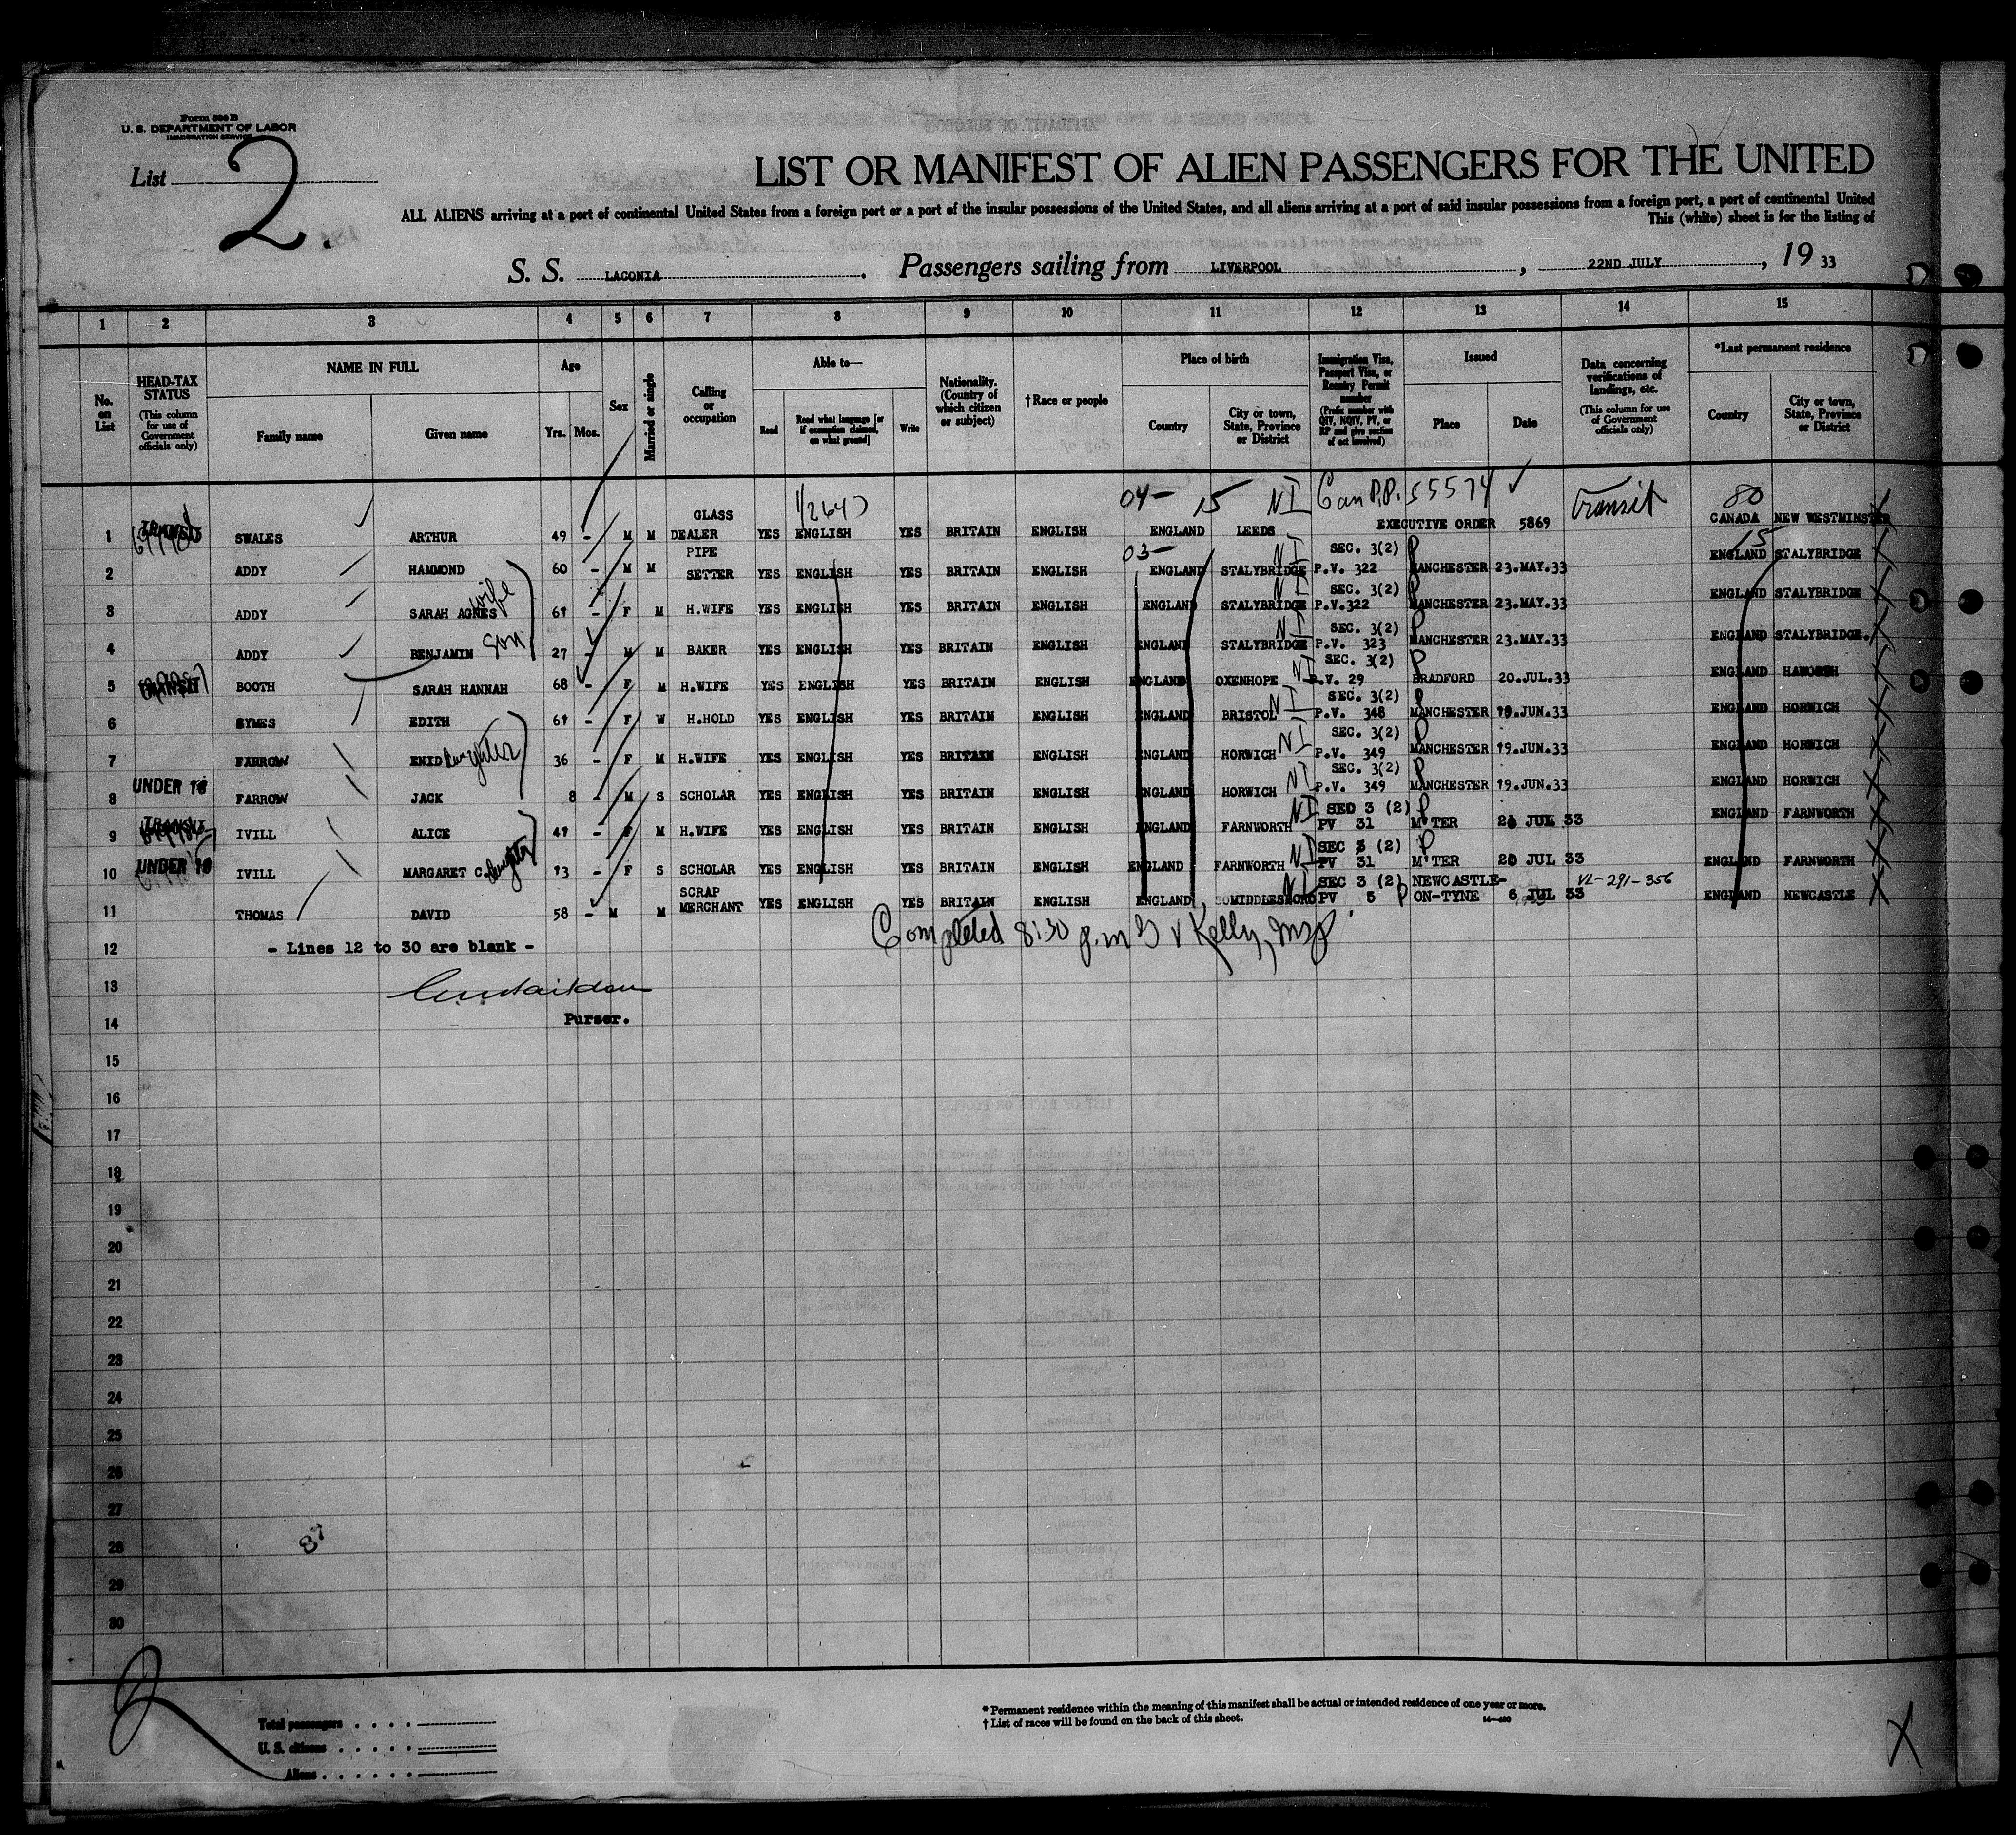 Form 500 B
U. S. DEPARTMENT OF LABOR
IMMIGRATION SERVICE
List 2.
LIST OR MANIFEST OF ALIEN PASSENGERS FOR THE UNITED
ALL ALIENS arriving at a port of continental United States from a foreign port or a port of the insular possessions of the United States, and all aliens arriving at a port of said insular possessions from a foreign port, a port of continental United
This (white) sheet is for the listing of
S. S. LACONIA . Passengers sailing from LIVERPOOL , 22ND JULY , 19 33
1 2 3 4 5 6 7 8 9 10 11 12 13 14 15
No. on List
HEAD-TAX STATUS (This column for use of Government officials only)
NAME IN FULL Family name Given name
Age Yrs. Mos.
Sex
Married or single
Calling or occupation
Able to— Read Read what language [or if exemption claimed, on what ground] Write
Nationality. (Country of which citizen or subject)
† Race or people
Place of birth Country City or town, State, Province or District
Immigration Visa, Passport Visa, or Reentry Permit number (Prefix number with QIV, NQIV, PV, or RP and give section of act involved)
Issued Place Date
Data concerning verifications of landings, etc. (This column for use of Government officials only)
*Last permanent residence Country City or town, State, Province or District
04- 15 NI Can P.P. 55574 ✓ Transit 80
1 TRANSIT SWALES ARTHUR 49 - M M GLASS DEALER YES ENGLISH YES BRITAIN ENGLISH ENGLAND LEEDS EXECUTIVE ORDER 5869 CANADA NEW WESTMINSTER
03- 15
2 ADDY HAMMOND 60 - M M PIPE SETTER YES ENGLISH YES BRITAIN ENGLISH ENGLAND STALYBRIDGE NI SEC. 3(2) P.V. 322 P MANCHESTER 23.MAY.33 ENGLAND STALYBRIDGE
3 ADDY SARAH AGNES wife 61 - F M H.WIFE YES ENGLISH YES BRITAIN ENGLISH ENGLAND STALYBRIDGE NI SEC. 3(2) P.V.322 P MANCHESTER 23.MAY.33 ENGLAND STALYBRIDGE
4 ADDY BENJAMIN son 27 - M M BAKER YES ENGLISH YES BRITAIN ENGLISH ENGLAND STALYBRIDGE NI SEC. 3(2) P.V. 323 P MANCHESTER 23.MAY.33 ENGLAND STALYBRIDGE.
5 TRANSIT BOOTH SARAH HANNAH 68 - F M H.WIFE YES ENGLISH YES BRITAIN ENGLISH ENGLAND OXENHOPE NI SEC. 3(2) P.V. 29 P BRADFORD 20.JUL.33 ENGLAND HAWORTH
6 SYMES EDITH 61 - F W H.HOLD YES ENGLISH YES BRITAIN ENGLISH ENGLAND BRISTOL NI SEC. 3(2) P.V. 348 P MANCHESTER 19.JUN.33 ENGLAND HORWICH
7 FARROW ENID daughter 36 - F M H.WIFE YES ENGLISH YES BRITAIN ENGLISH ENGLAND HORWICH NI SEC. 3(2) P.V. 349 P MANCHESTER 19.JUN.33 ENGLAND HORWICH
8 UNDER 16 FARROW JACK 8 - M S SCHOLAR YES ENGLISH YES BRITAIN ENGLISH ENGLAND HORWICH NI SEC. 3(2) P.V. 349 P MANCHESTER 19.JUN.33 ENGLAND HORWICH
9 TRANSIT IVILL ALICE 41 - F M H.WIFE YES ENGLISH YES BRITAIN ENGLISH ENGLAND FARNWORTH NI SEC 3 (2) PV 31 P M'TER JUL 33 ENGLAND FARNWORTH
10 UNDER 16 IVILL MARGARET C. daughter 13 - F S SCHOLAR YES ENGLISH YES BRITAIN ENGLISH ENGLAND FARNWORTH NI SEC 3 (2) PV 31 P M'TER JUL 33 ENGLAND FARNWORTH
11 THOMAS DAVID 58 - M M SCRAP MERCHANT YES ENGLISH YES BRITAIN ENGLISH ENGLAND MIDDLESBORO NI SEC 3 (2) PV 5 P NEWCASTLE-ON-TYNE 6 JUL 33 VL-291-356 ENGLAND NEWCASTLE
12 - Lines 12 to 30 are blank - Completed 8:30 p.m Kelly, Insp
13
14 Purser.
15
16
17
18
19
20
21
22
23
24
25
26
27
28 87
29
30
2
Total passengers . . . .
U. S. citizens . . . . .
Aliens . . . . . .
* Permanent residence within the meaning of this manifest shall be actual or intended residence of one year or more.
† List of races will be found on the back of this sheet.
X